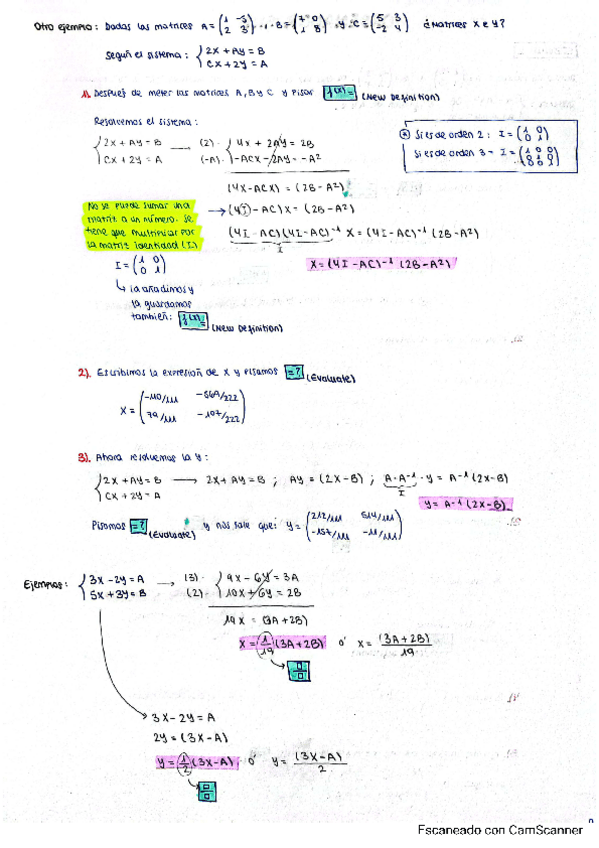 Otro ejemplo: Dadas las matrices A = (1 -3 / 2 3), B = (7 0 / 1 8) y C = (5 3 / -2 4) ¿Matrices X e Y?
Según el sistema: { 2X + AY = B
CX + 2Y = A
1). Después de meter las matrices A, B y C y pisar f(x)= (New Definition)
Resolvemos el sistema:
{ 2X + AY = B → (2)· { 4X + 2AY = 2B
CX + 2Y = A (-A)· -ACX - 2AY = -A²
Si es de orden 2: I = (1 0 / 0 1)
Si es de orden 3 → I = (1 0 0 / 0 1 0 / 0 0 1)
(4X - ACX) = (2B - A²)
No se puede sumar una matriz a un número. Se tiene que multiplicar por la matriz identidad (I)
→ (4I - AC) X = (2B - A²)
(4I - AC)(4I - AC)⁻¹ X = (4I - AC)⁻¹ (2B - A²)
I
I = (1 0 / 0 1)
X = (4I - AC)⁻¹ (2B - A²)
↳ la añadimos y
la guardamos
también: f(x)= (New Definition)
2). Escribimos la expresión de X y pisamos =? (Evaluate)
X = (-110/111 -569/222 / 79/111 -107/222)
3). Ahora resolvemos la Y:
{ 2X + AY = B → 2X + AY = B ; AY = (2X - B) ; A·A⁻¹·Y = A⁻¹ (2X - B)
CX + 2Y = A
I
Y = A⁻¹ (2X - B)
Pisamos =? (Evaluate) y nos sale que: Y = (212/111 514/111 / -157/111 -11/111)
Ejemplos: { 3X - 2Y = A → (3)· { 9X - 6Y = 3A
5X + 3Y = B (2)· 10X + 6Y = 2B
19X = (3A + 2B)
X = 1/19 (3A + 2B) ó X = (3A + 2B)/19
3X - 2Y = A
2Y = (3X - A)
Y = 1/2 (3X - A) ó Y = (3X - A)/2
Escaneado con CamScanner